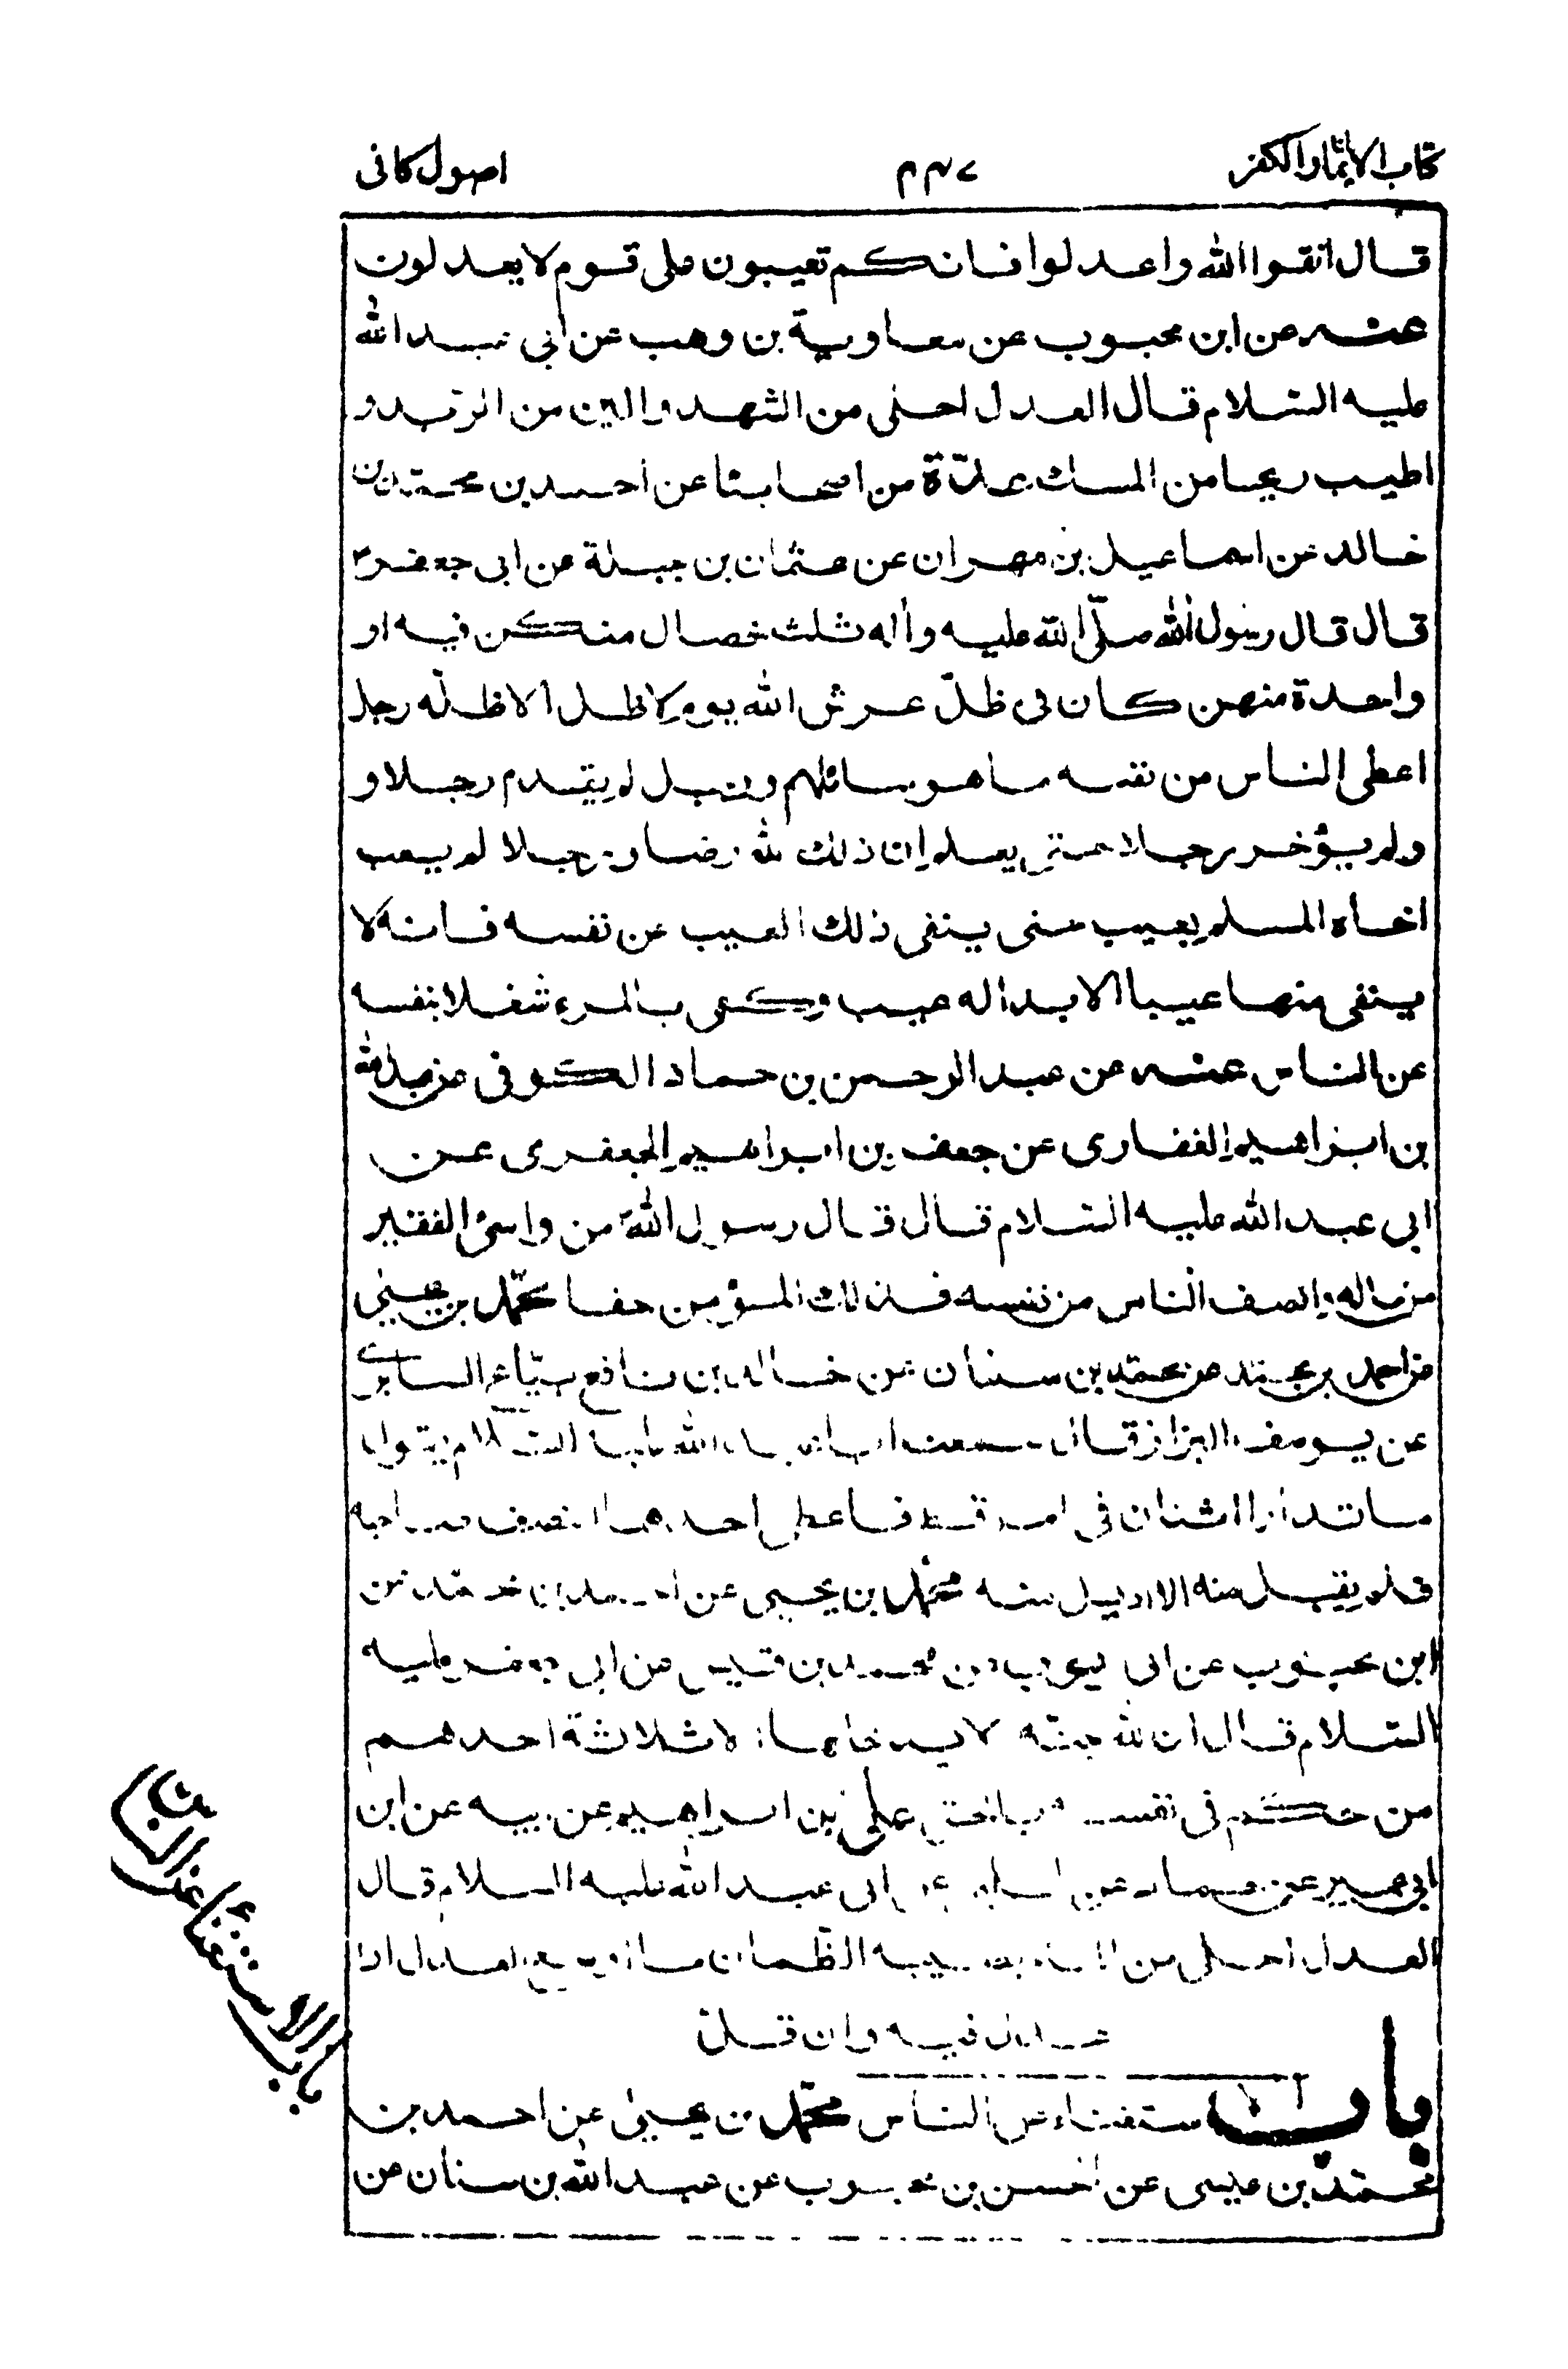 كتاب الايمان والكفر
اصول كافى
قال اتقوا الله واعدلوا فانكم تعيبون على قوم لا يعدلون
عنه عن ابن محبوب عن معاوية بن وهب عن ابي عبد الله
عليه السلام قال العدل احلى من الشهد والين من الزبد و
اطيب ريحا من المسك عدّة من اصحابنا عن احمد بن محمد بن
خالد عن اسماعيل بن مهران عن عثمان بن جبلة عن ابى جعفر ع
قال قال رسول الله صلّى الله عليه واٰله ثلث خصال من كن فيه او
واحدة منهن كان فى ظلّ عرش الله يوم لا ظل الا ظلّه رجل
اعطى الناس من نفسه ما هو سائلهم ورجل لم يقدم رجلا و
ولم يؤخر رجلا حتى يعلم ان ذلك لله رضا ورجلا لم يعب
اخاه المسلم بعيب حتى ينفى ذلك العيب عن نفسه فانه لا
ينفى منها عيبا الا بدا له عيب وكفى بالمرء شغلا بنفسه
عن الناس عنه عن عبد الرحمن بن حماد الكوفى عن عبد الله
بن ابراهيم الغفارى عن جعفر بن ابراهيم الجعفرى عن
ابى عبد الله عليه السلام قال قال رسول الله ص من واسى الفقير
من ماله وانصف الناس من نفسه فذلك المؤمن حقا محمّد بن عيسى
عن احمد بن محمّد عن محمّد بن سنان عن خالد بن نافع بيّاع السابرى
عن يوسف البزاز قال سمعت ابا عبد الله عليه السلام يقول
ما تدارا اثنان فى امر قط فاعطى احدهما النصف صاحبه
فلم يقبل منه الا اديل منه محمّد بن يحيى عن احمد بن محمد عن
ابن محبوب عن ابى ايوب عن محمد بن قيس عن ابى جعفر عليه
السلام قال ان لله جنّه لا يدخلها الا ثلاثة احدهم
من حكم فى نفسه بالحق على بن ابراهيم عن ابيه عن ابن
ابى عمير عن حماد عن الحلبى عن ابى عبد الله عليه السلام قال
العدل احلى من الماء يصيبه الظّمان ما اوسع العدل اذا
عدل فيه وان قلّ
باب الاستغناء عن الناس محمّد بن يحيى عن احمد بن
محمّد بن عيسى عن الحسن بن محبوب عن عبد الله بن سنان عن
باب الاستغناء عن الناس